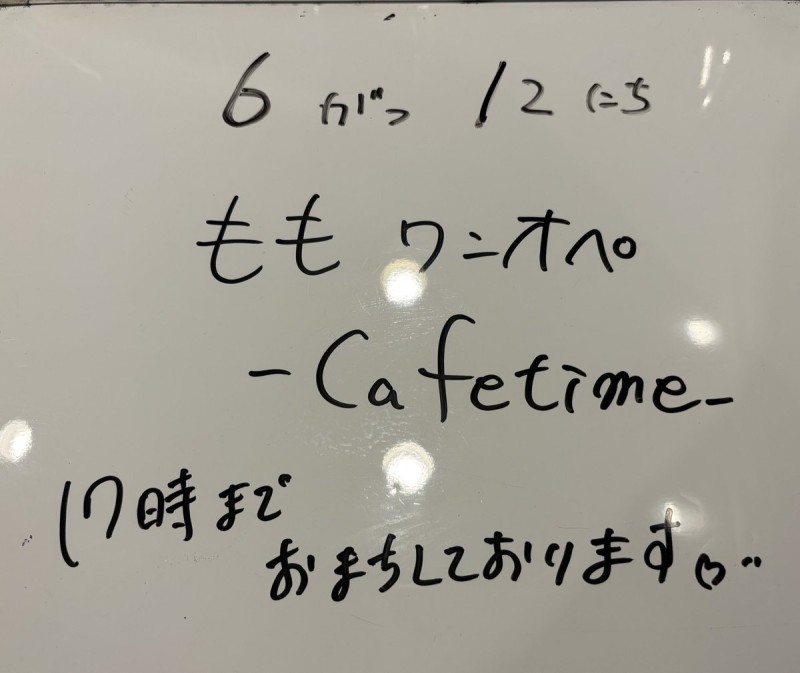 6がつ 12にち
もも ワンオペ
-Cafetime-
17時まで
おまちしております